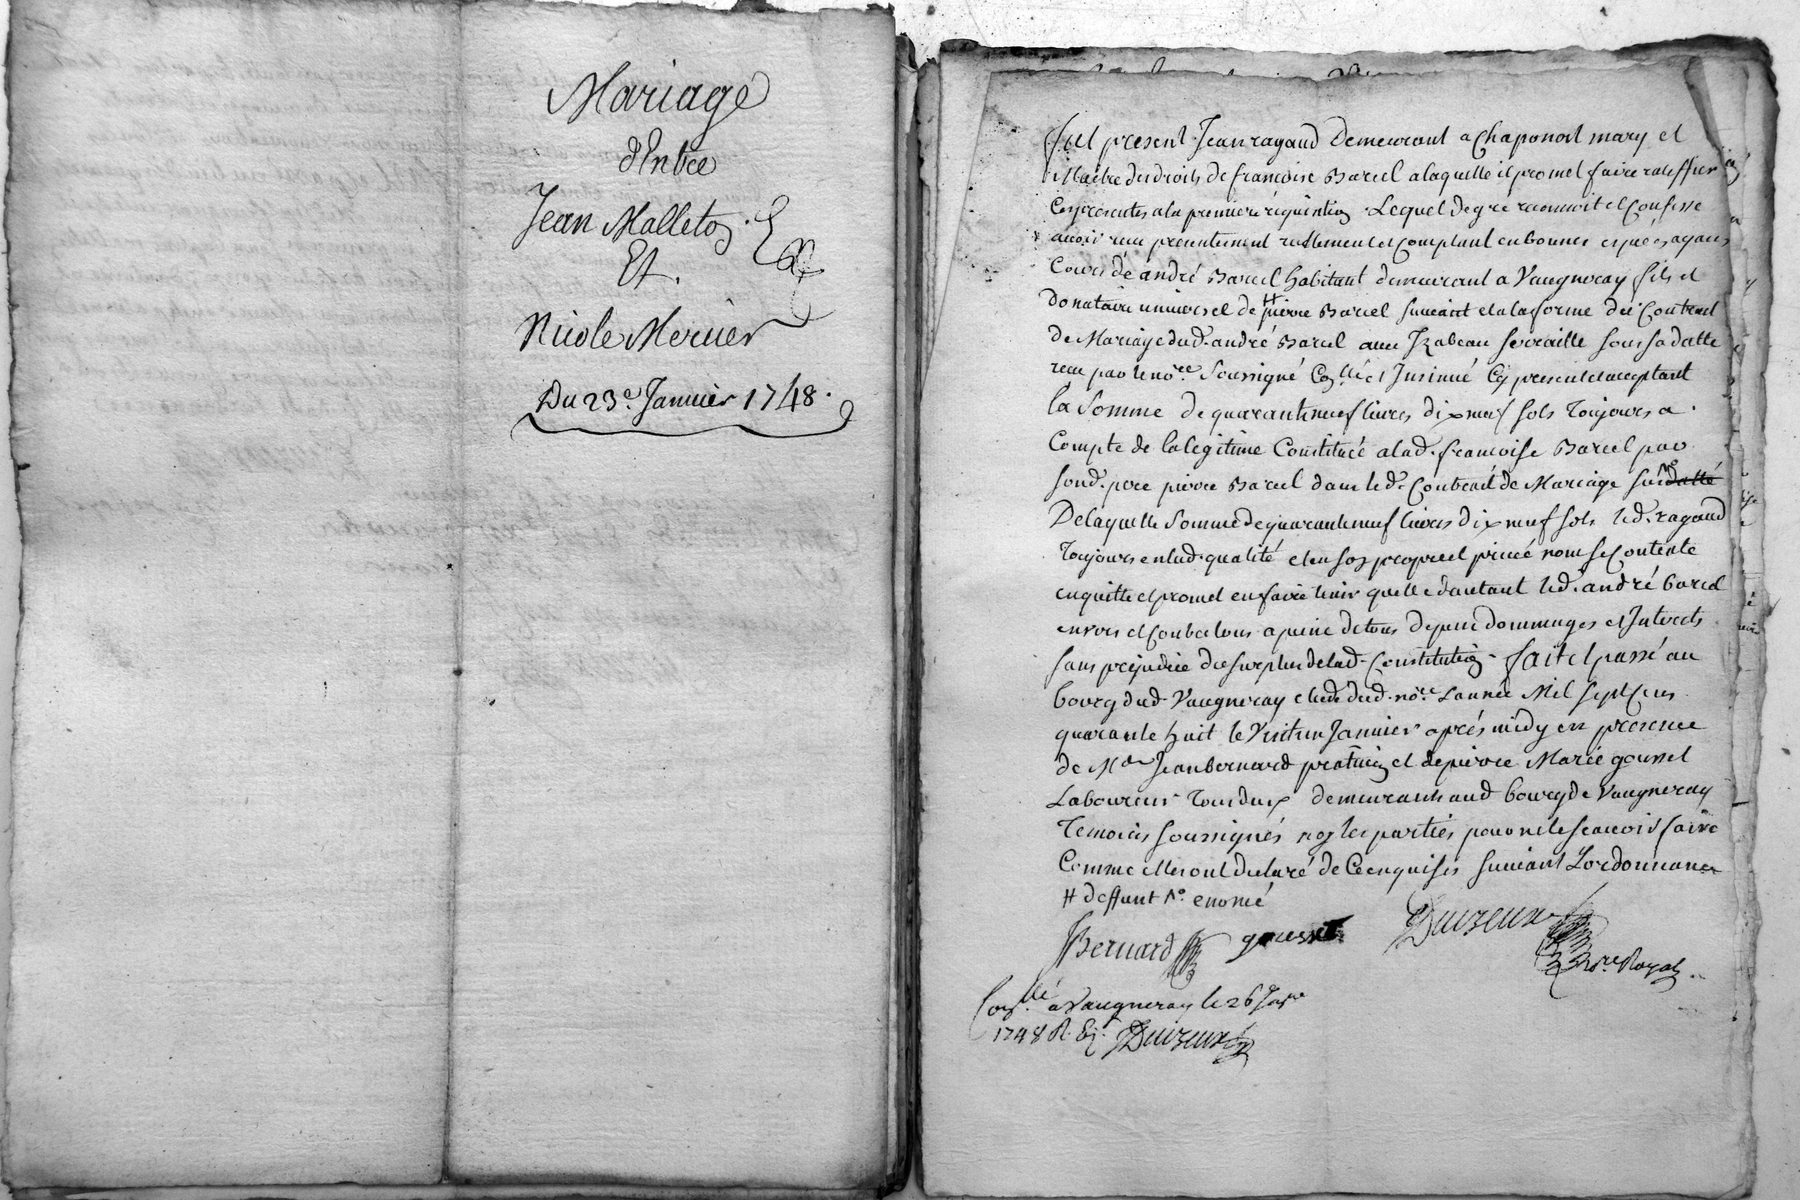 Mariage
d'Entre
Jean Malleton
Et
Nicole Mercier
Du 23e Janvier 1748.
fut present Jean ragaud demeurant a Chaponost mary et
Maitre des droits de francoise Barcel a laquelle il promet faire ratiffier
Ces presentes a la premiere requisition Lequel de gre reconnoit et Confesse
avoir recu presentement reellement et Comptant en bonnes especes ayans
Cours de andré Barcel habitant demeurant a Vaugneray fils et
donataire universel de # pierre Barcel suivant et a la forme du Contract
de Mariage dud. andré Barcel avec Izabeau ferraille sous sa datte
recu par le nore. Soussigné Conllé et Insinué Cy present et acceptant
la Somme de quarante neuf livres dix neuf sols Toujours a
Compte de la legitime Constituée a lad. francoise Barcel par
sond. pere pierre Barcel dans led. Contrait de Mariage
De laquelle Somme de quarante neuf livres dix neuf sols led. ragaud
Toujours en lad. qualité et en son propre et privé nom se Contente
en quitte et promet en faire tenir quitte d'autant led. andré barcel
envers et Contre tous a peine de tous depens dommages et Interets
sans prejudice du surplus de lad. Constitution fait et passé au
bourg dud. Vaugneray etude dud. nore. L'année Mil sept cens
quarante huit le Vint un Janvier aprés midy en presence
de Me Jean bernard praticien et de pierre Marie gousset
Laboureur Tous deux demeurants aud bourg de Vaugneray
Temoins soussignés non les parties pour ne le scavoir faire
Comme elles ont declaré de Ce enquises suivant L'ordonnance
# deffunt
Bernard gousset
Nore. Royal
Conllé a Vaugneray le 26 Janr
1748 R.